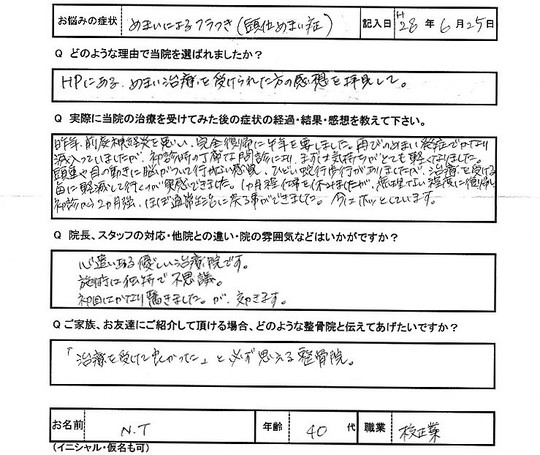 お悩みの症状 めまいによるフラつき(頭位めまい症) 記入日 H28年6月25日
Q どのような理由で当院を選ばれましたか?
HPにある、めまい治療を受けられた方の感想を拝見して。
Q 実際に当院の治療を受けてみた後の症状の経過・結果・感想を教えて下さい。
昨年、前庭神経炎を患い、完全復帰に半年を要しました。再びのめまい発症でかなり
滅入っていましたが、初診時の丁寧な問診により、まずは気持ちがとても軽くなりました。
頭重や目の動きに脳がついて行かない感覚、ひどい蛇行歩行がありましたが、治療を受ける
毎に軽減して行くのが実感できました。1ヶ月程仕事を休みましたが、無理ない程度に復帰し
初診から2ヶ月強、ほぼ通常生活に戻る事ができました。今はホッとしています。
Q 院長、スタッフの対応・他院との違い・院の雰囲気などはいかがですか?
心遣いある優しい治療院です。
施術は独特で不思議。
初回はかなり驚きました。が、効きます。
Q ご家族、お友達にご紹介して頂ける場合、どのような整骨院と伝えてあげたいですか?
「治療を受けて良かった」と必ず思える整骨院。
お名前 N.T 年齢 40代 職業 校正業
(イニシャル・仮名も可)